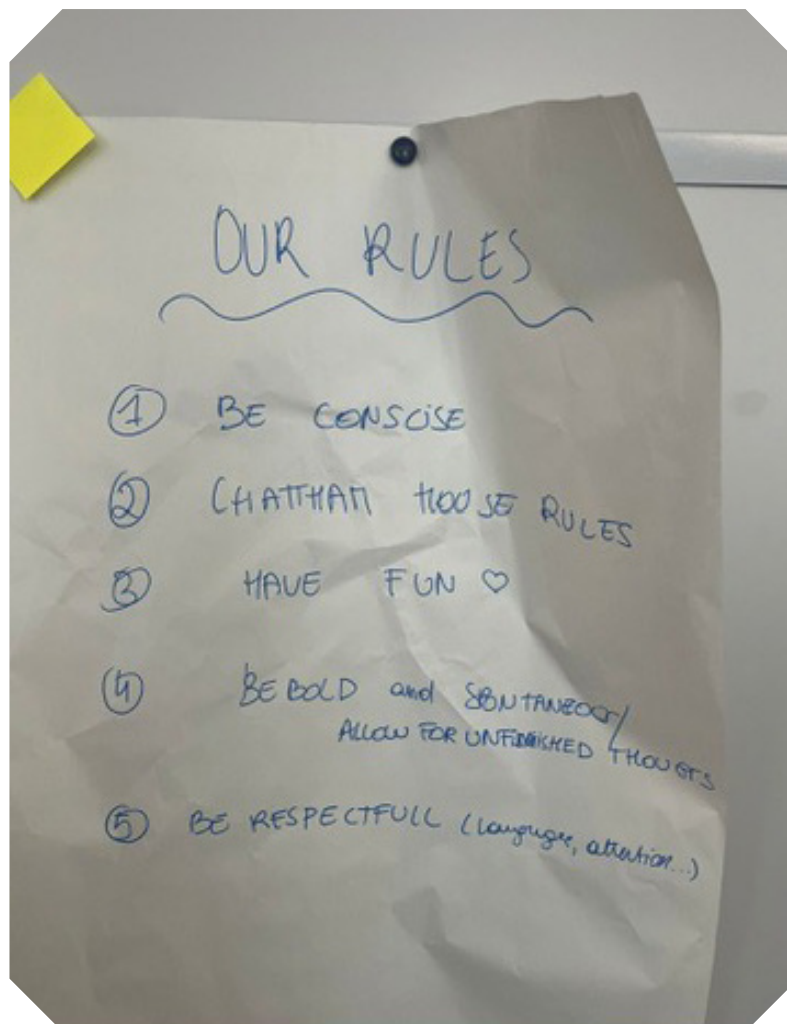 OUR RULES
1 BE CONSCISE
2 CHATTHAM HOUSE RULES
3 HAVE FUN ♡
4 BE BOLD and SPONTANEOUS/
ALLOW FOR UNFINISHED THOUGTS
5 BE RESPECTFULL (language, attention...)